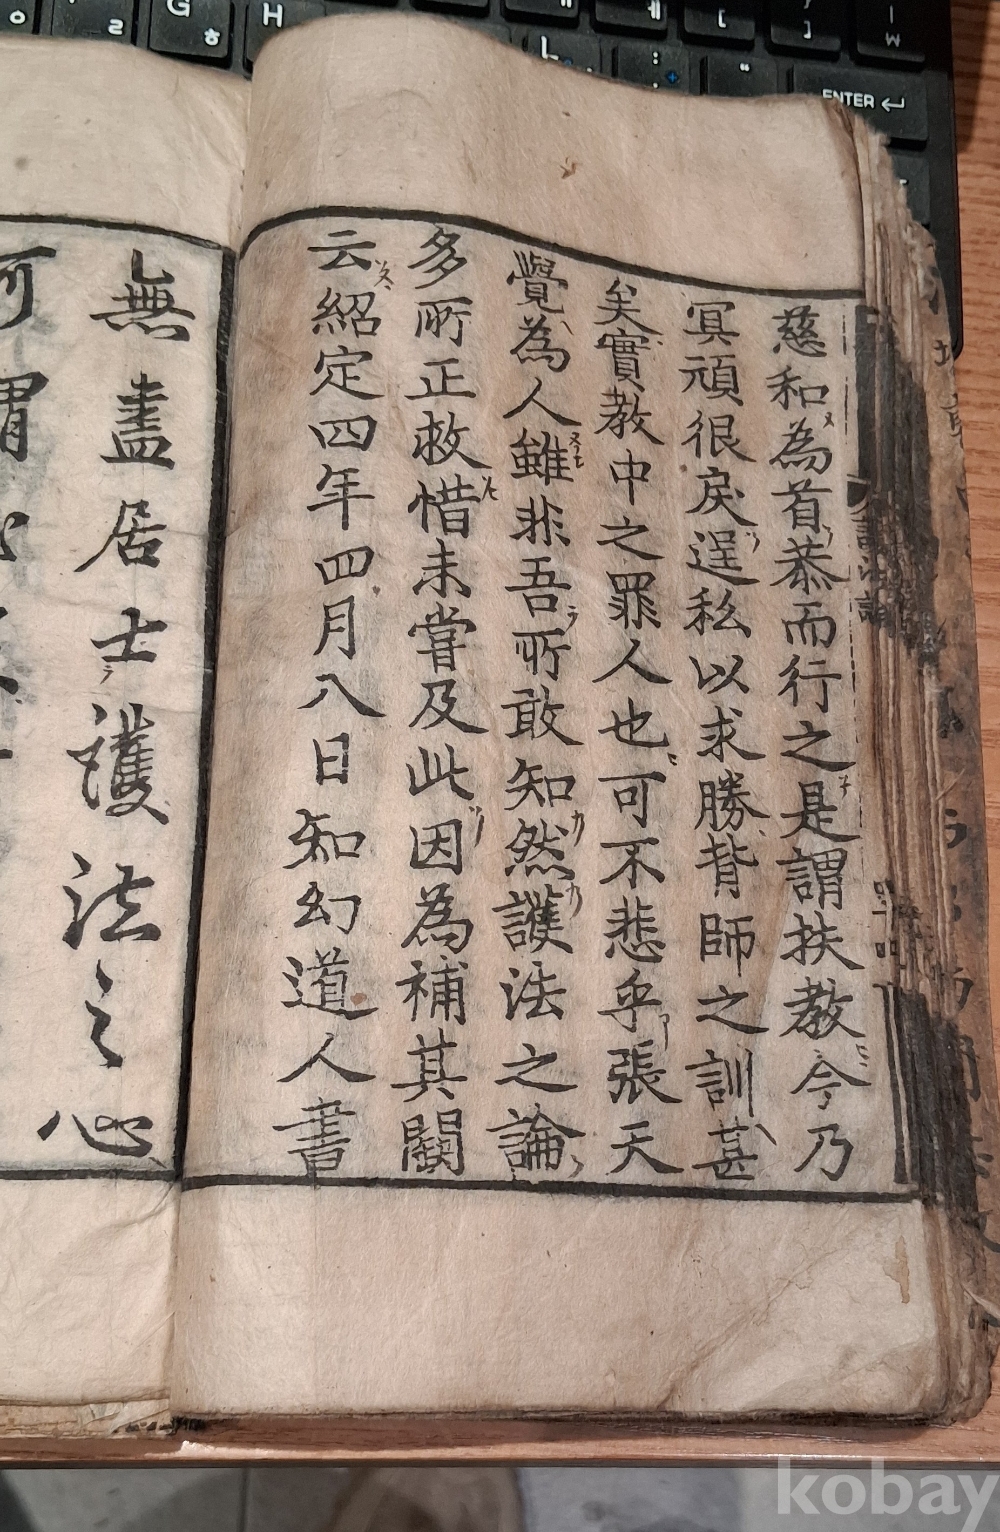 慈和為首恭而行之是謂扶教今乃
冥頑很戾逞私以求勝背師之訓甚
矣實教中之罪人也可不悲乎張天
覺為人雖非吾所敢知然護法之論
多所正救惜未嘗及此因為補其闕
云紹定四年四月八日知幻道人書
無盡居士護法之心
可謂
G
ㅎ
H
ENTER
kobay